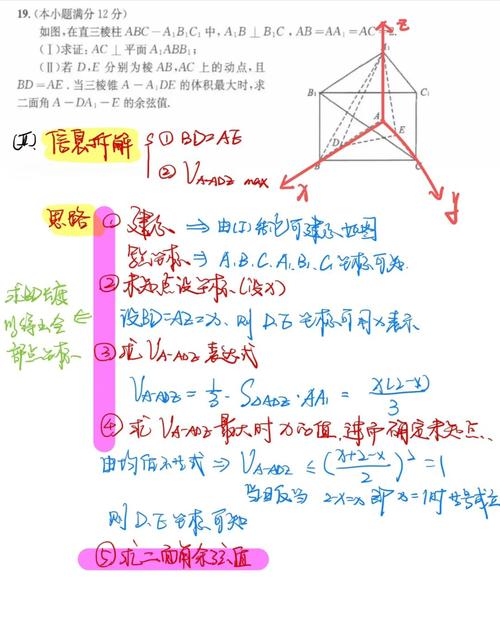 19.(本小题满分12分)
如图,在直三棱柱ABC-A₁B₁C₁中,A₁B⊥B₁C,AB=AA₁=AC=2.
(Ⅰ)求证:AC⊥平面A₁ABB₁;
(Ⅱ)若D,E分别为棱AB,AC上的动点,且
BD=AE.当三棱锥A-A₁DE的体积最大时,求
二面角A-DA₁-E的余弦值.
z
B₁
C₁
A
D
E
B
C
x
y
(Ⅱ) 信息拆解
① BD=AE
② V_{A-A₁DE} max
思路
① 建系 ⇒ 由(Ⅰ)结论可建系如图
点坐标 ⇒ A.B.C.A₁.B₁.C₁坐标可知
② 未知点设坐标(设x)
设BD=AE=x. 则 D.E坐标可用x表示
求BD长度
以得出全
部点坐标
③ 求V_{A-A₁DE}表达式
V_{A-A₁DE}=1/3·S_{△ADE}·AA₁=x(2-x)/3
④ 求V_{A-A₁DE}最大时x的值,进而确定未知点.
由均值不等式 ⇒ V_{A-A₁DE}≤((x+2-x)/2)²=1
当且仅当 2-x=x 即x=1时等号成立
则D.E坐标可知
⑤ 求二面角余弦值